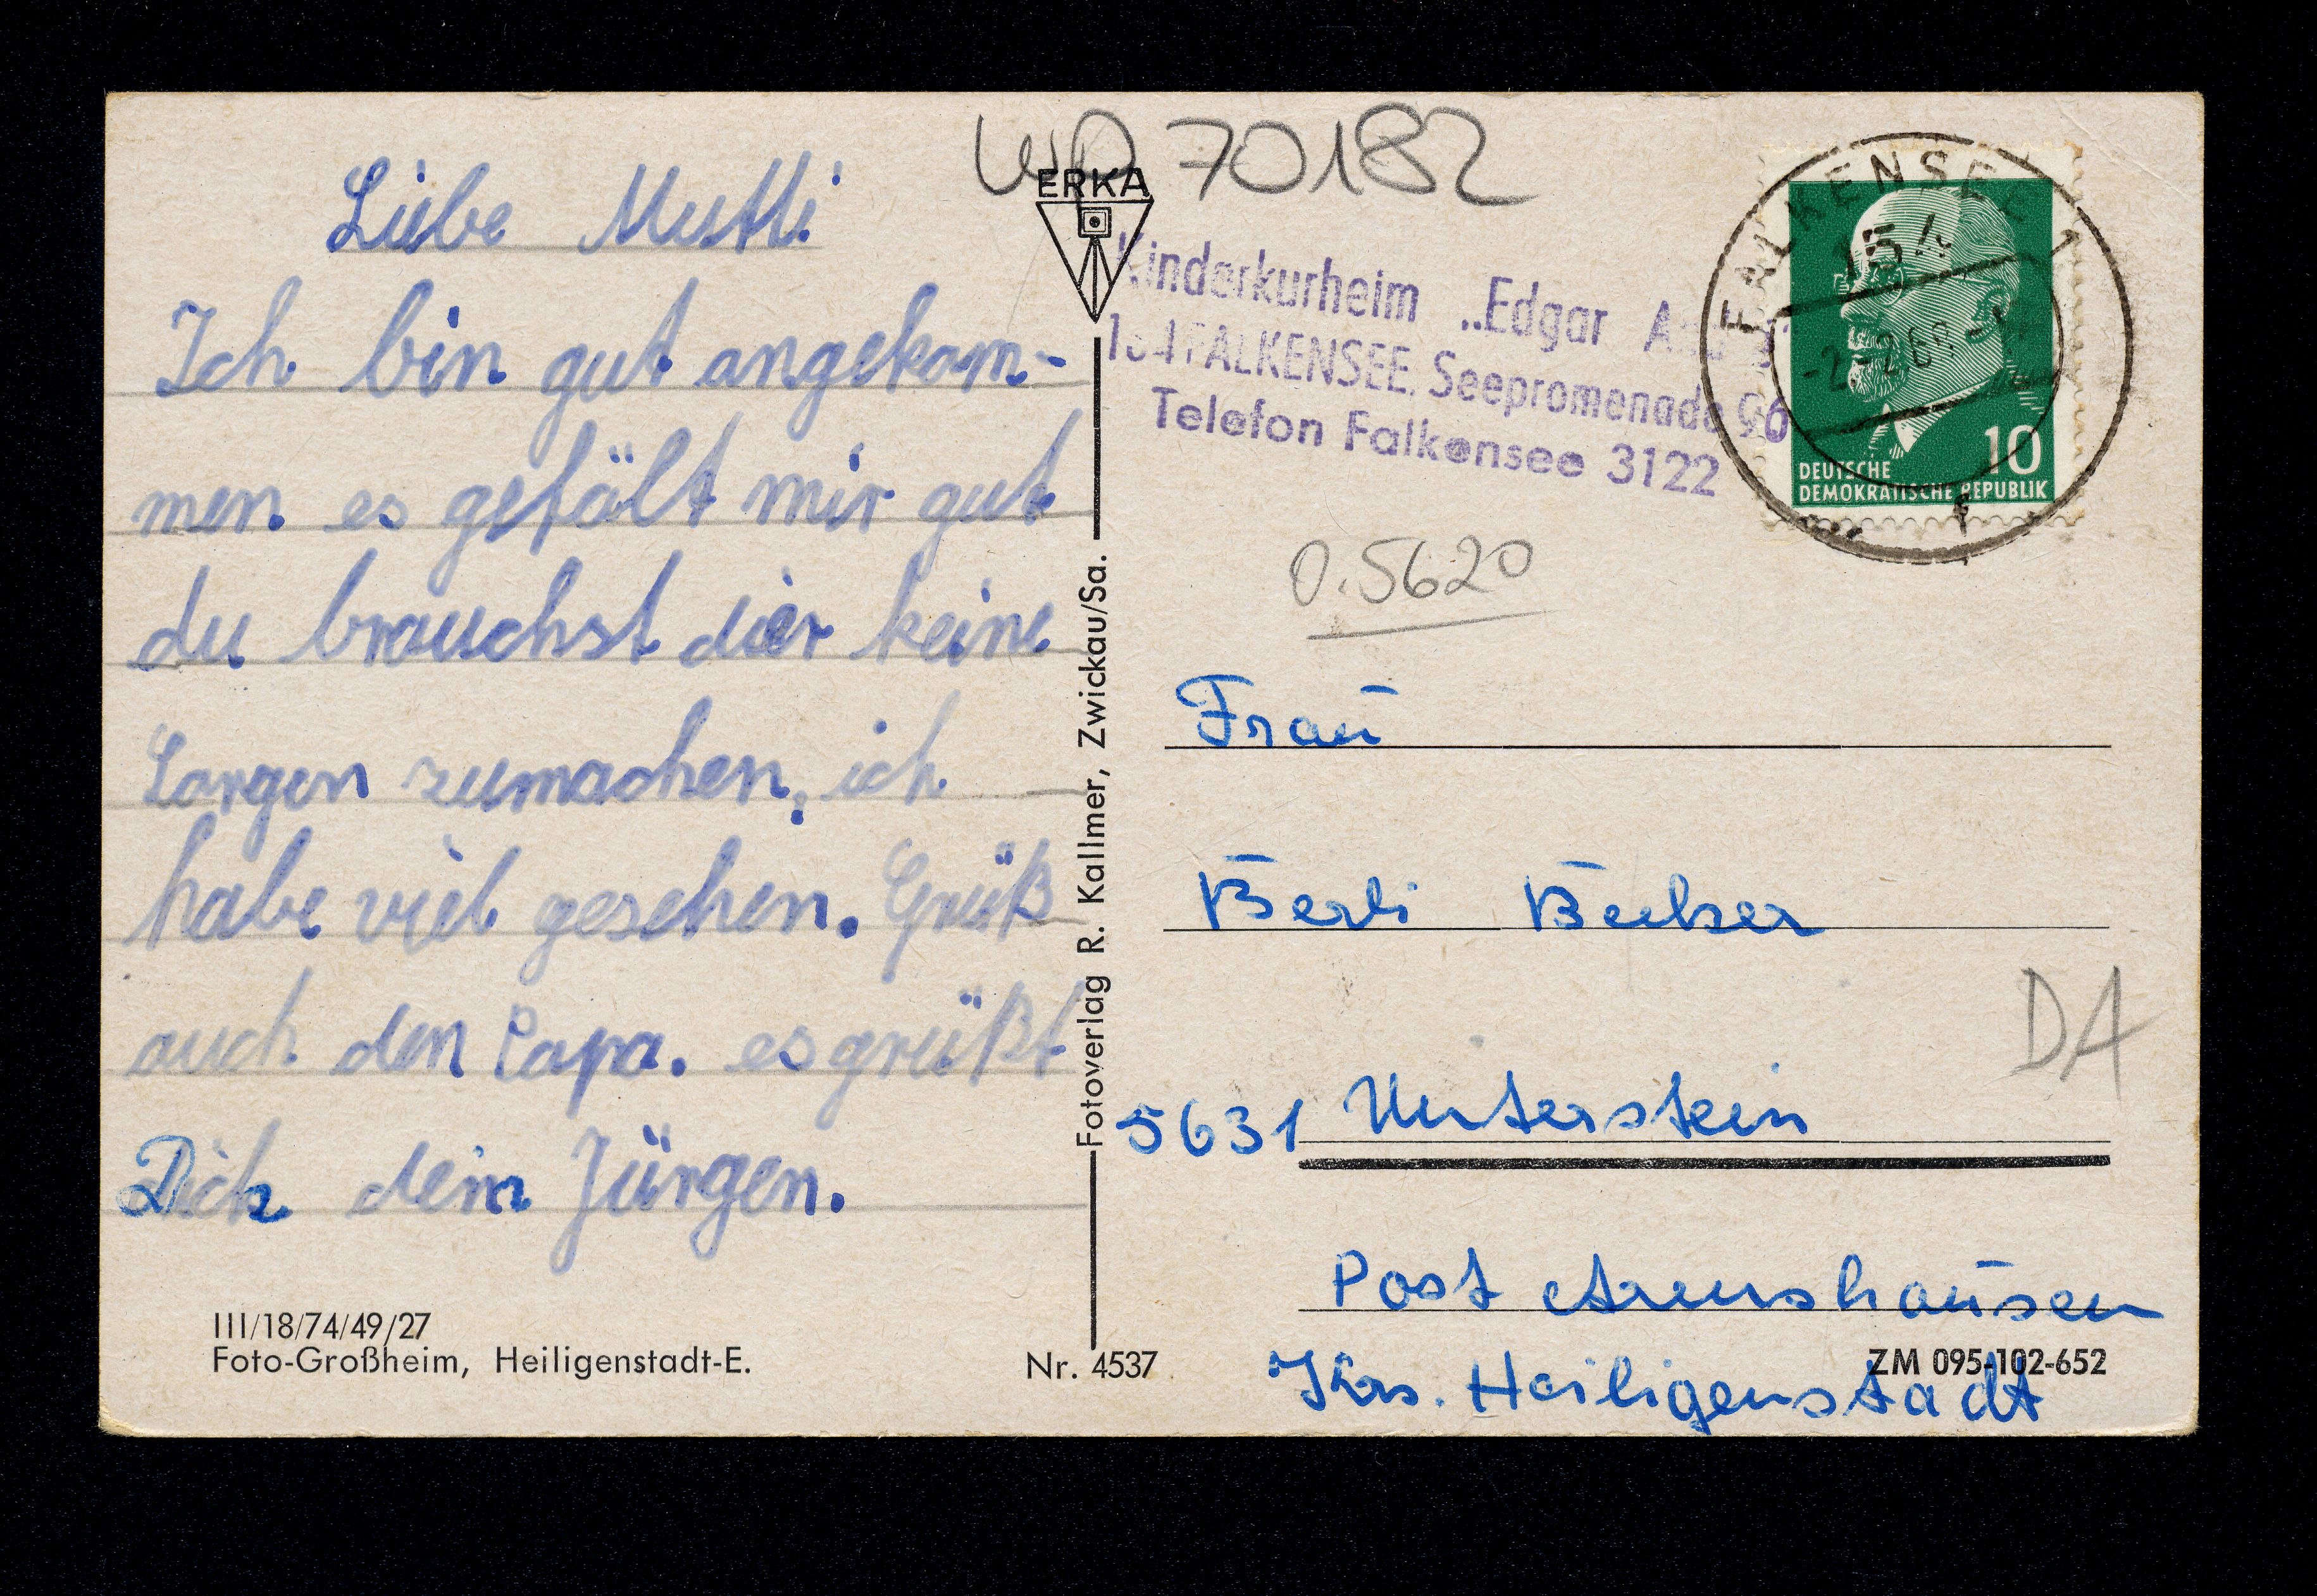 Liebe Mutti
Ich bin gut angekom-
men es gefält mir gut
du brauchst dier keine
Sorgen zumachen, ich
habe viel gesehen. Grüß
auch den Papa. es grüßt
Dich dein Jürgen.
III/18/74/49/27
Foto-Großheim, Heiligenstadt-E.
ERKA
Fotoverlag R. Kallmer, Zwickau/Sa.
Nr. 4537
70182
Kinderkurheim „Edgar
FALKENSEE, Seepromenade 96
Telefon Falkensee 3122
FALKENSEE 1
154
DEUTSCHE
DEMOKRATISCHE REPUBLIK
10
0.5620
Frau
Berti Becker
DA
5631 Unterstein
Post Arenshausen
Krs. Heiligenstadt
ZM 095-102-652